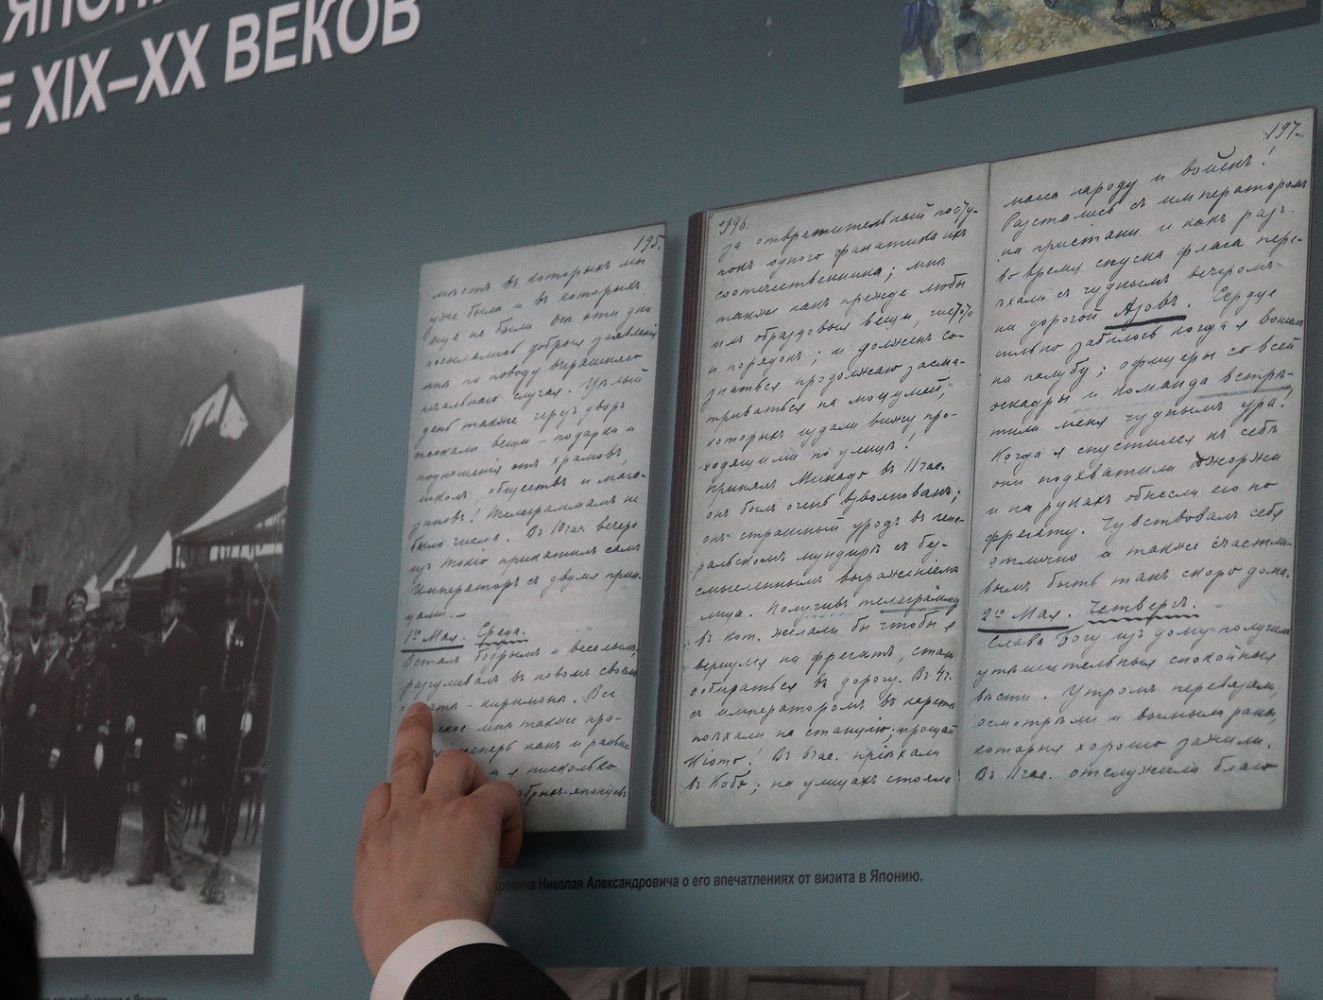 ЯПОНИ
Е XIX–XX ВЕКОВ
195.
мѣстъ въ которыхъ мы
уже были и въ которыхъ
еще не были всѣ эти дни
посыпались добрыя заявленія
мнѣ по поводу вчерашняго
печальнаго случая. Цѣлый
день также черезъ дворъ
таскали вещи – подарки и
подношенія отъ храмовъ,
школъ, обществъ и мага-
зиновъ! Телеграммамъ не
было числа. Въ 10 час. вечера
изъ Токіо прикатилъ самъ
Императоръ съ двумя прин-
цами. –
1го Мая. Среда.
Всталъ бодрымъ и веселымъ,
разгуливалъ въ новомъ своемъ
халатѣ – киримонѣ. Все
мнѣ также нра-
теперь какъ и раньше
и я нисколько
добрыхъ японцевъ
196.
за отвратительный посту-
покъ одного фанатика ихъ
соотечественника; мнѣ
также какъ прежде любы
ихъ образцовыя вещи, чистота
и порядокъ; и долженъ со-
знаться продолжаю засма-
триваться на
которыхъ издали вижу про-
ходящими по улицѣ!
Принялъ Микадо въ 11 час.
онъ былъ очень взволнованъ;
онъ страшный уродъ въ гене-
ральскомъ мундирѣ съ
выраженіемъ
лица. Получивъ телеграмму
въ кот. желали бы чтобы я
вернулся на фрегатъ, сталъ
собираться въ дорогу. Въ 4 ч.
съ императоромъ въ каретѣ
поѣхали на станцію; прощай
Кіото! Въ 6 час. пріѣхали
въ Кобе; на улицахъ стояла
197.
масса народу и войскъ!
Разстались съ императоромъ
на пристани и какъ разъ
во время спуска флага пере-
ѣхали съ чуднымъ вечеромъ
на дорогой Азовъ. Сердце
сильно забилось когда я вошелъ
на палубу; офицеры со всей
эскадры и команда встрѣ-
тили меня чуднымъ ура!
Когда я спустился къ себѣ
они подхватили Джоржи
и на рукахъ обнесли его по
фрегату. Чувствовалъ себя
отлично а также счастли-
вымъ быть такъ скоро дома.
2го Мая. Четвергъ.
Слава Богу изъ дому получилъ
утѣшительныя спокойныя
вѣсти. Утромъ перевязали,
осмотрѣли и вымыли раны,
которыя хорошо зажили.
Въ 11 час. отслужили благо
Николая Александровича о его впечатлениях от визита в Японию.